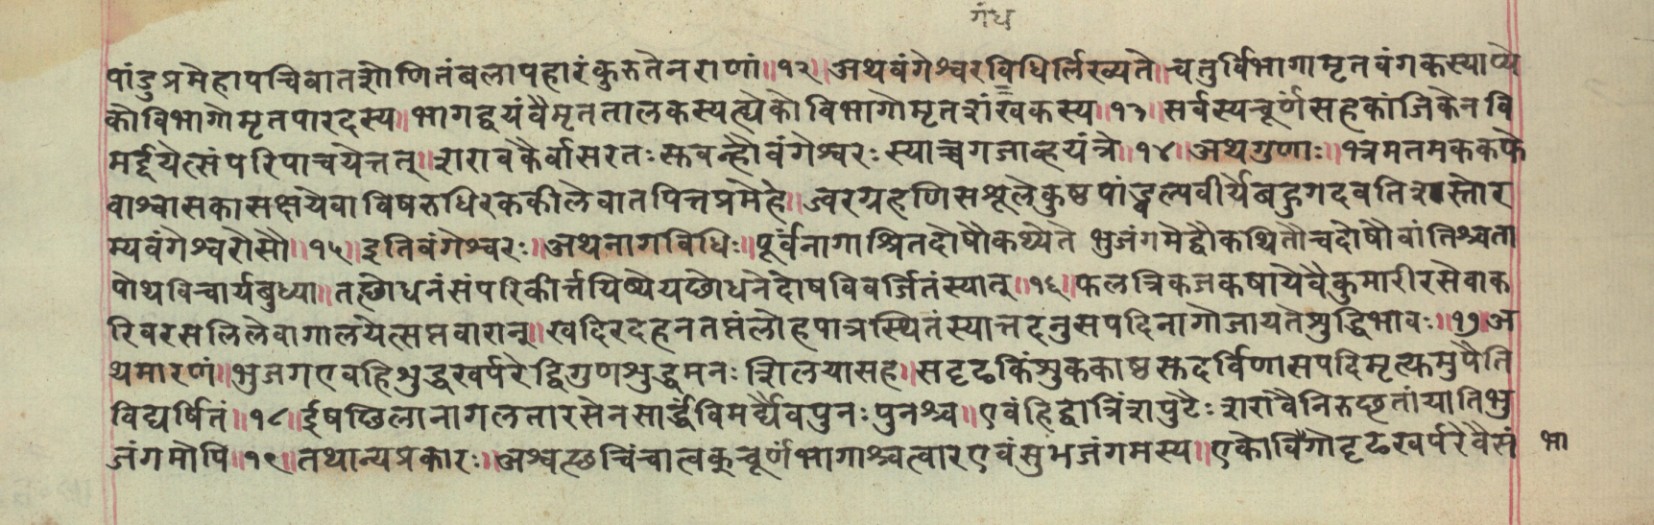 गंध
पांडुप्रमेहापचिवातशोणितंबलापहारंकुरुतेनराणां॥१२॥अथवंगेश्वरविधिर्लिख्यते॥चतुर्विभागामृतवंगकस्याप्ये
कोविभागोमृतपारदस्य॥भागद्वयंवैमृततालकस्यत्प्येकोविभागोमृतशंखकस्य॥१३॥सर्वस्यचूर्णंसहकांजिकेनवि
मर्द्दयेत्संपरिपाचयेत्तत्॥शरावकैर्वासरतःस्तवन्हौवंगेश्वरःस्याच्चगजाव्हयंत्रे॥१४॥अथगुणाः॥भ्रमतमककफे
वाश्वासकासक्षयेवाविषरुधिरककीलेवातपित्तप्रमेहे॥ज्वरग्रहणिसशूलेकुष्ठपांड्वल्पवीर्येबहुगदवतिशस्तोर
म्यवंगेश्वरोसौ॥१५॥इतिवंगेश्वरः॥अथनागविधिः॥पूर्वंनागाश्रितदोषौकथ्येते भुजंगमेद्वौकथितौचदोषौवांतिश्चता
पोथविचार्यबुध्या॥तछोधनंसंपरिकीर्त्तयिष्येयछोधनेदोषविवर्जितंस्यात्॥१६॥फलत्रिकजकषायेवैकुमारीरसेवाक
रिवरसलिलेवागालयेत्सप्तवारान्॥खदिरदहनतप्तंलोहपात्रस्थितंस्यात्तदनुसपदिनागोजायतेशुद्धिभावः॥१७॥अ
थमारणं॥भुजगएवहिशुद्धखर्परेद्विगुणशुद्धमनःशिलयासह॥सदृढकिंशुककाष्ठस्तदर्विणासपदिमृत्युमुपैति
विघर्षितं॥१८॥ईषछिलानागलतारसेनसार्द्धंविमर्द्यैवपुनःपुनश्च॥एवंहिद्वात्रिंशपुटैःशरावैनिरुछतांयातिभु
जंगमोपि॥१९॥तथान्यप्रकारः॥अश्वत्छचिंचात्वक्चूर्णंभागाश्चत्वारएवंसुभजंगमस्य॥एकोविगोदृढखर्परेवैसं
भा